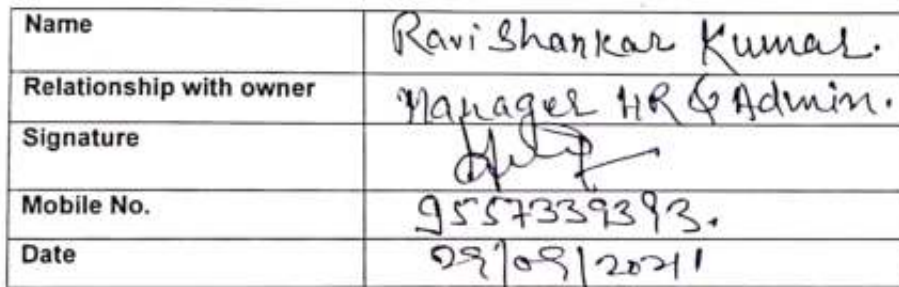 Name Ravi Shankar Kumar.
Relationship with owner Manager HR & Admin.
Signature
Mobile No. 9557339393.
Date 09/09/2021